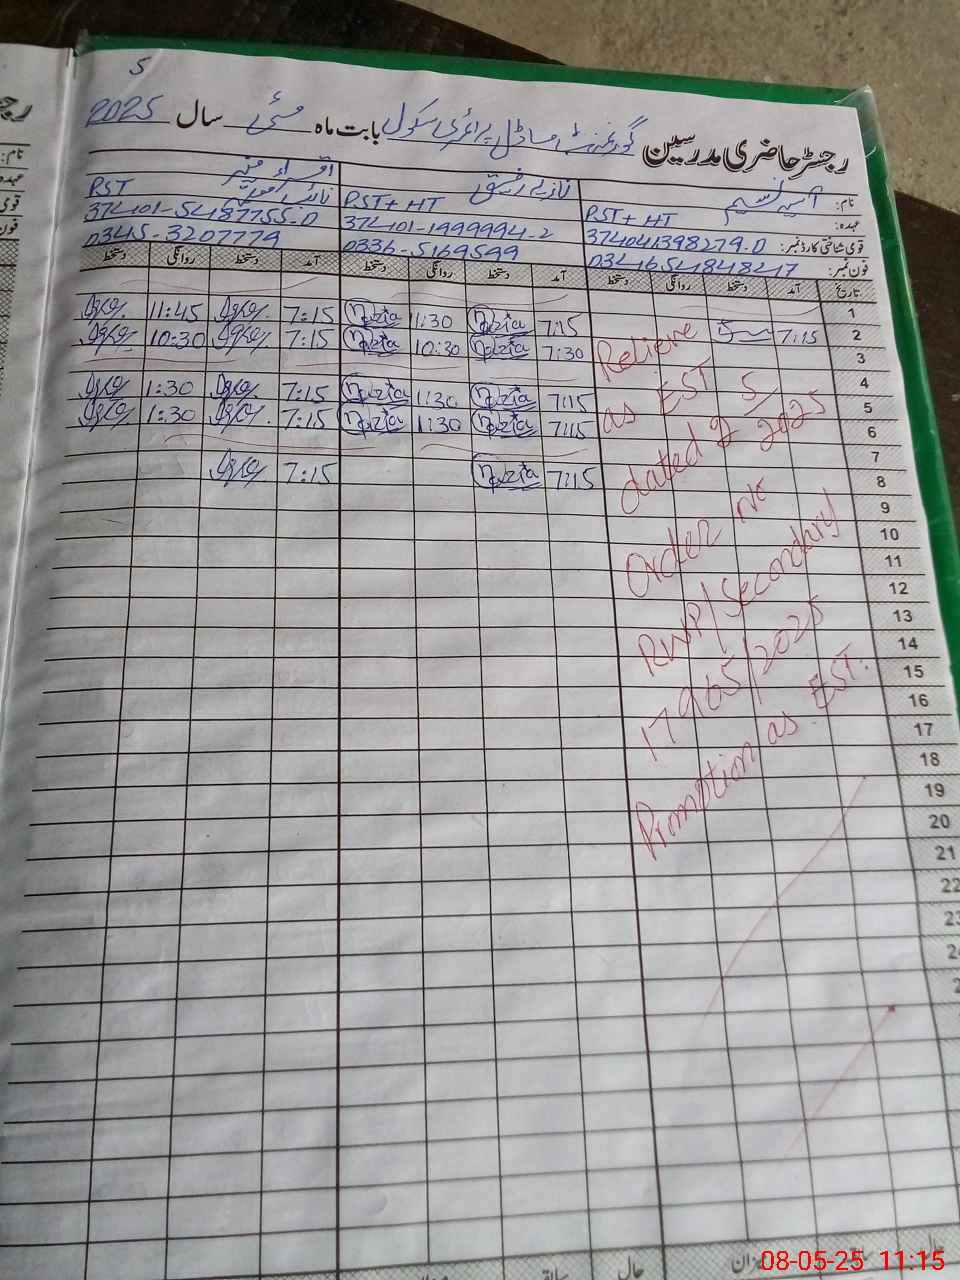 5
رجسٹر حاضری مدرسین گورنمنٹ ماڈل پرائمری سکول بابت ماہ مئی سال 2025
نام: آسیہ نسیم نازلی رفیق اقراء منیر
عہدہ: PST+ HT PST+ HT PST
قومی شناختی کارڈ نمبر: 374041398279.0 37401-1999994-2 37401-5487755.0
فون نمبر: 03465484847 0336-5169599 0345-3207779
تاریخ آمد دستخط روانگی دستخط آمد دستخط روانگی دستخط آمد دستخط روانگی دستخط
1
2 7:15 7:15 Nazia 11:30 Nazia 7:15 11:45
3 7:30 Nazia 10:30 Nazia 7:15 10:30
4
5 7:15 Nazia 1:30 Nazia 7:15 1:30
6 7:15 Nazia 1:30 Nazia 7:15 1:30
7
8 7:15 Nazia 7:15
9
10
11
12
13
14
15
16
17
18
19
20
21
22
23
Relieve
as EST
dated 2/5/2025
Order no
RWP/Secondary
17965/2025
Promotion as EST.
حال سابقہ حال میزان
08-05-25 11:15